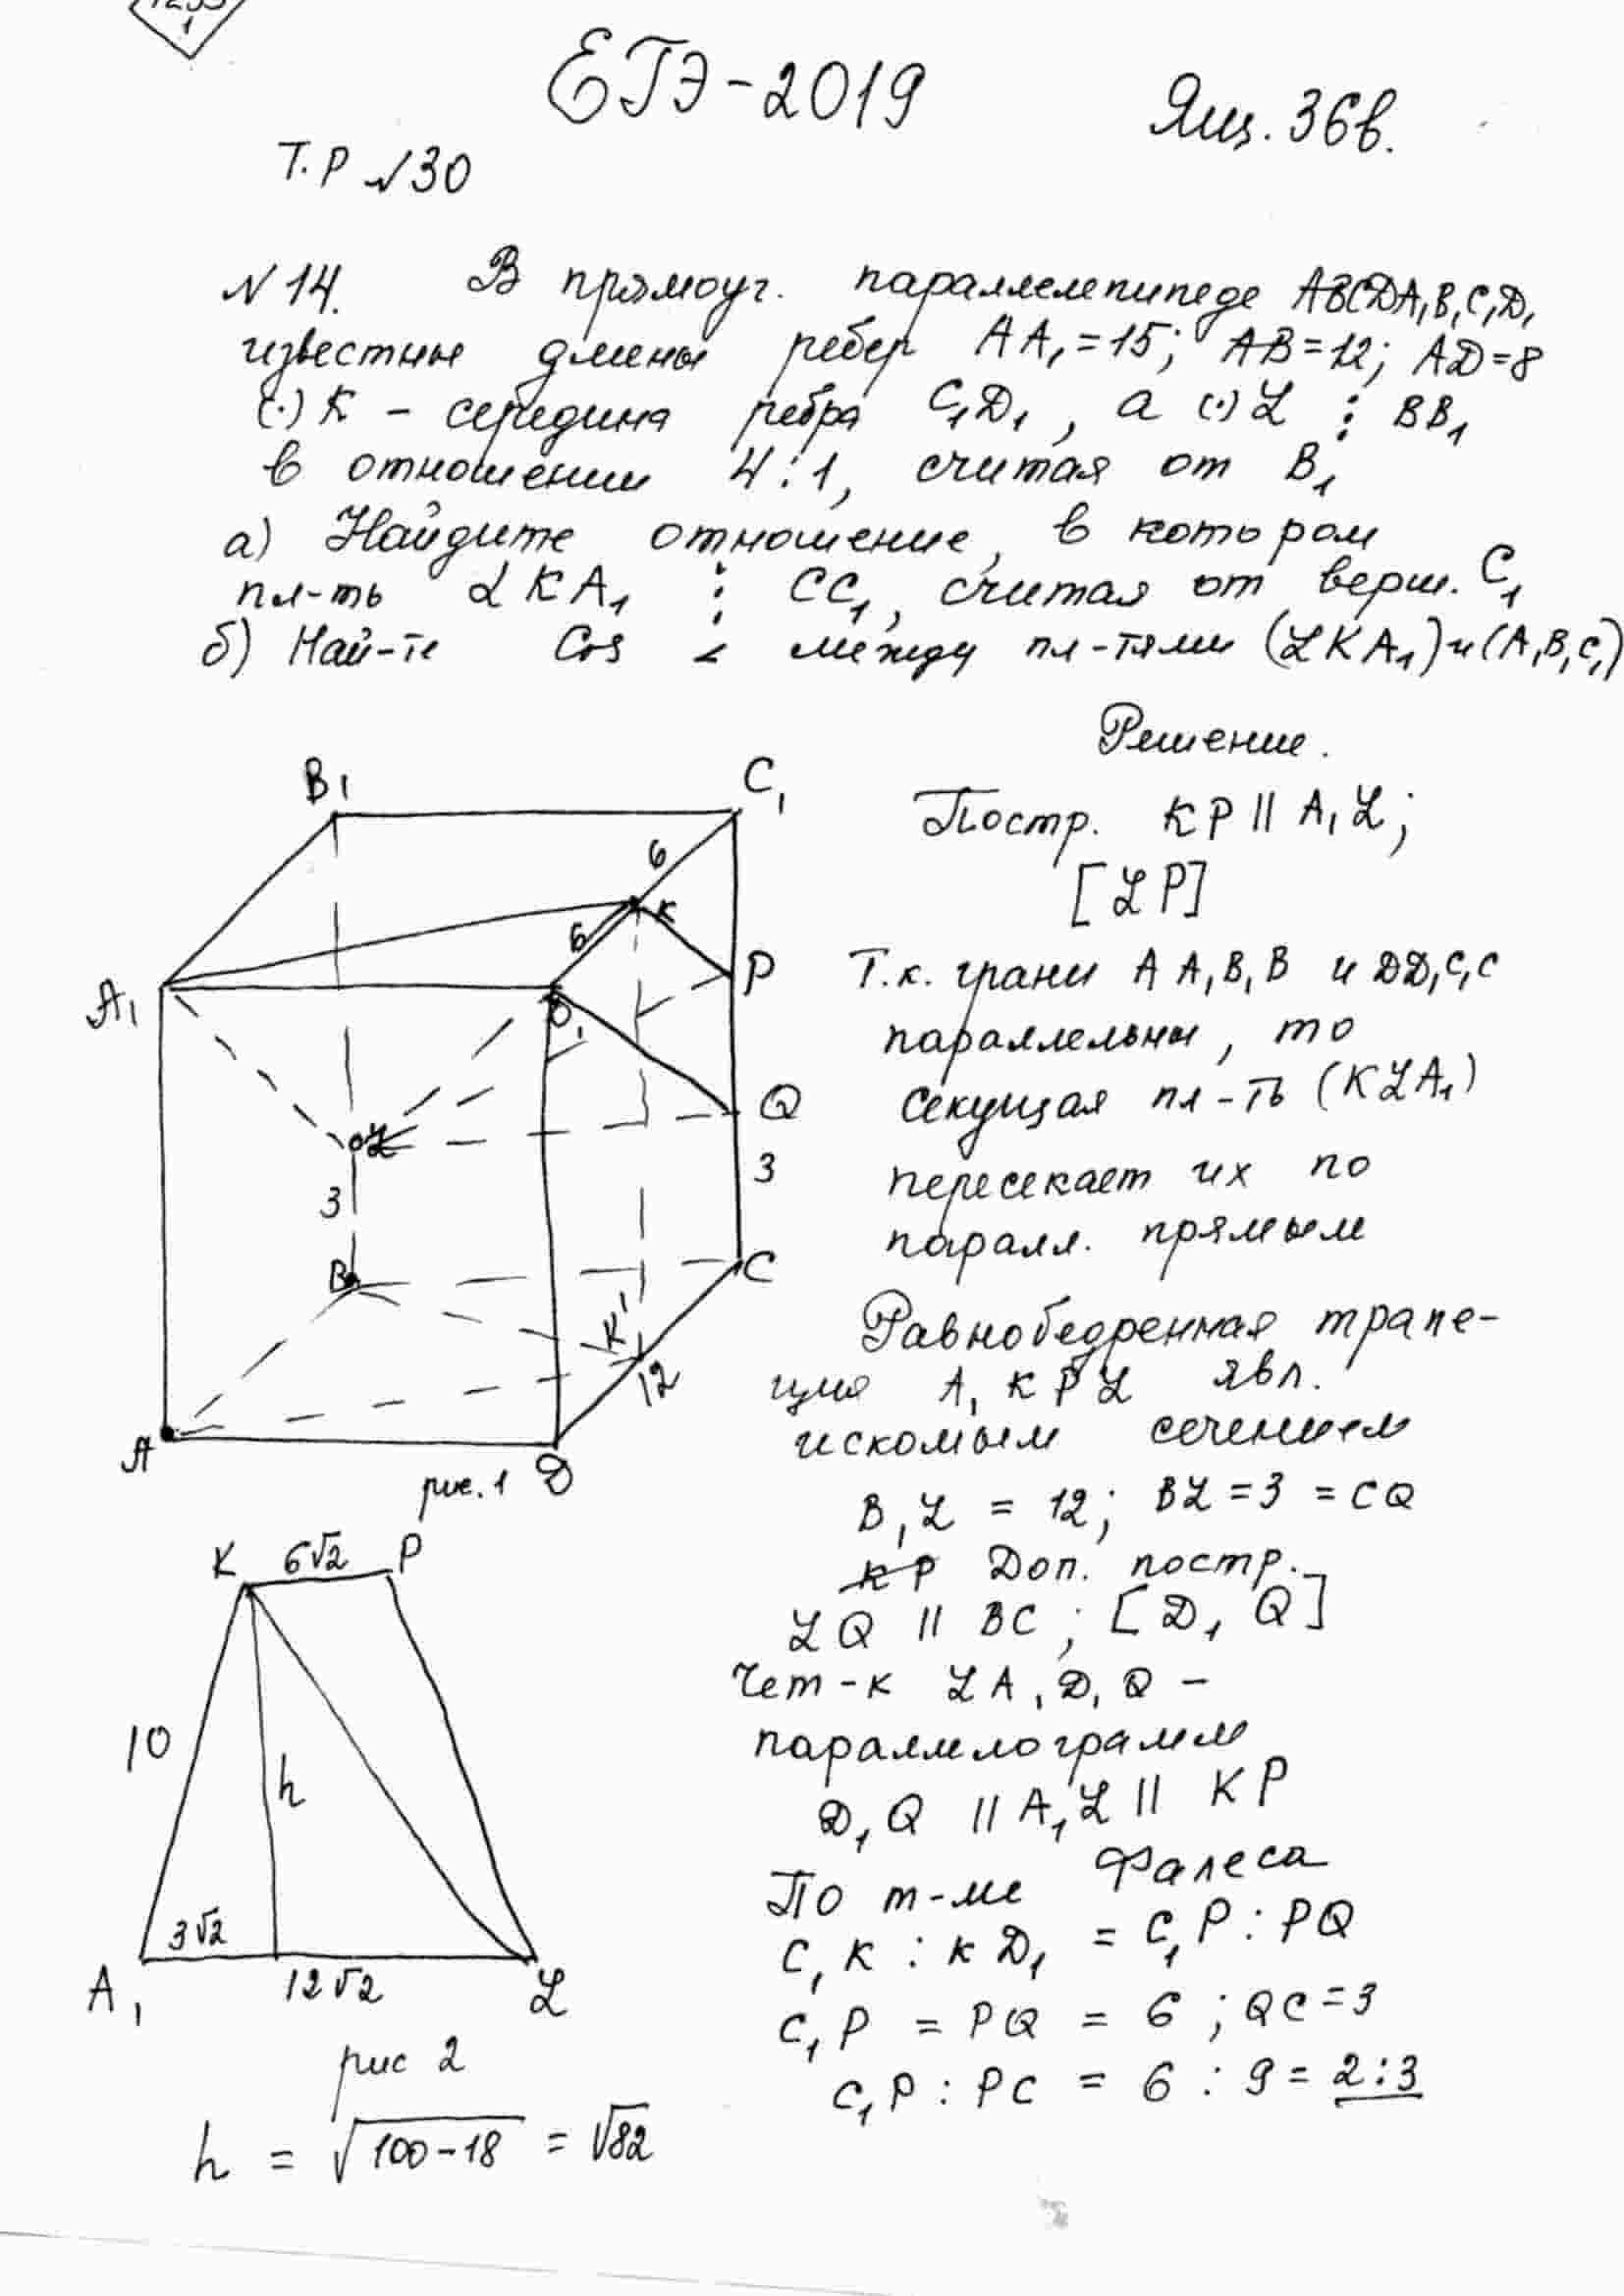 1
ЕГЭ-2019
Ящ. 36в.
Т.Р №30
№14. В прямоуг. параллелепипеде ABCDA₁B₁C₁D₁
известны длины ребер AA₁=15; AB=12; AD=8
(·) K - середина ребра C₁D₁, а (·) L ⋮ BB₁
в отношении 4:1, считая от B₁
а) Найдите отношение, в котором
пл-ть LKA₁ ⋮ CC₁, считая от верш. C₁
б) Най-те Cos ∠ между пл-тями (LKA₁) и (A₁B₁C₁)
Решение.
Постр. KP || A₁L;
[LP]
Т.к. грани AA₁B₁B и DD₁C₁C
параллельны, то
секущая пл-ть (KLA₁)
пересекает их по
паралл. прямым
Равнобедренная трапе-
ция A₁KPL явл.
искомым сечением
B₁L = 12; BL = 3 = CQ
KP Доп. постр.
LQ || BC; [D₁Q]
Чет-к LA₁D₁Q -
параллелограмм
D₁Q || A₁L || KP
По т-ме Фалеса
C₁K : KD₁ = C₁P : PQ
C₁P = PQ = 6; QC = 3
C₁P : PC = 6 : 9 = 2:3
B₁
C₁
6
K
6
P
A₁
D₁
Q
L
3
3
B
C
K'
12
A
D
рис. 1
K
6√2
P
10
h
3√2
A₁
12√2
L
рис 2
h = √100-18 = √82